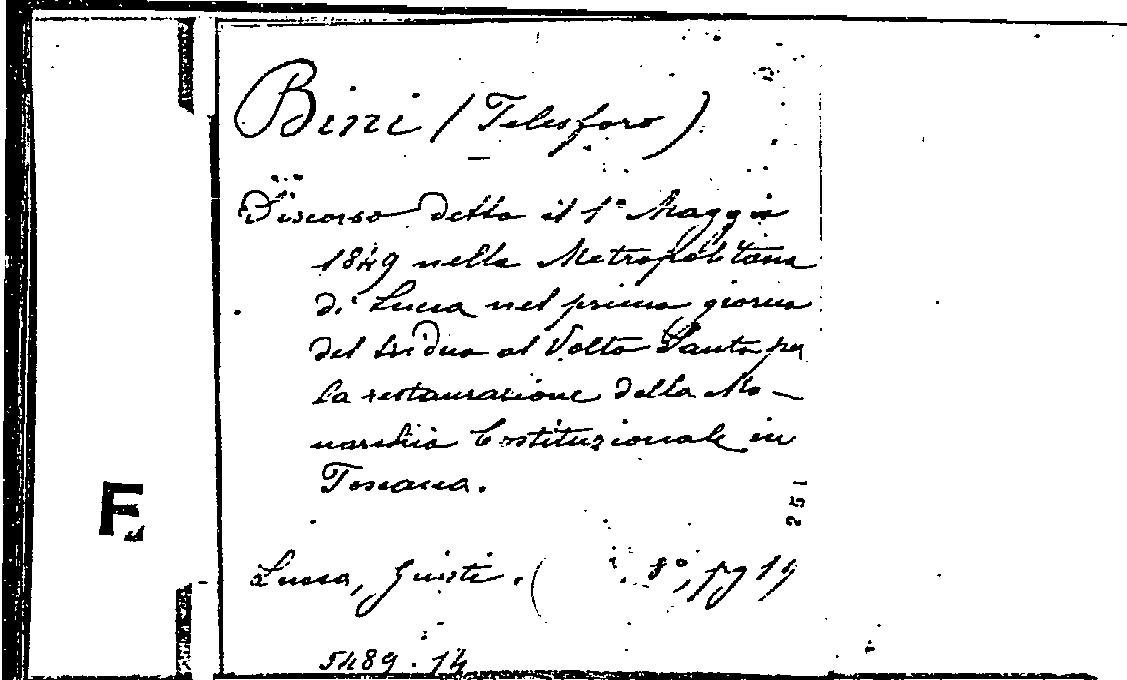 Bini (Telesforo)
Discorso detto il 1° Maggio
1849 nella Metropolitana
di Lucca nel primo giorno
del triduo al Volto Santo per
la restaurazione della Mo-
narchia Costituzionale in
Toscana.
251
F
Lucca, Giusti. ( 8°, pg 14
5489.14